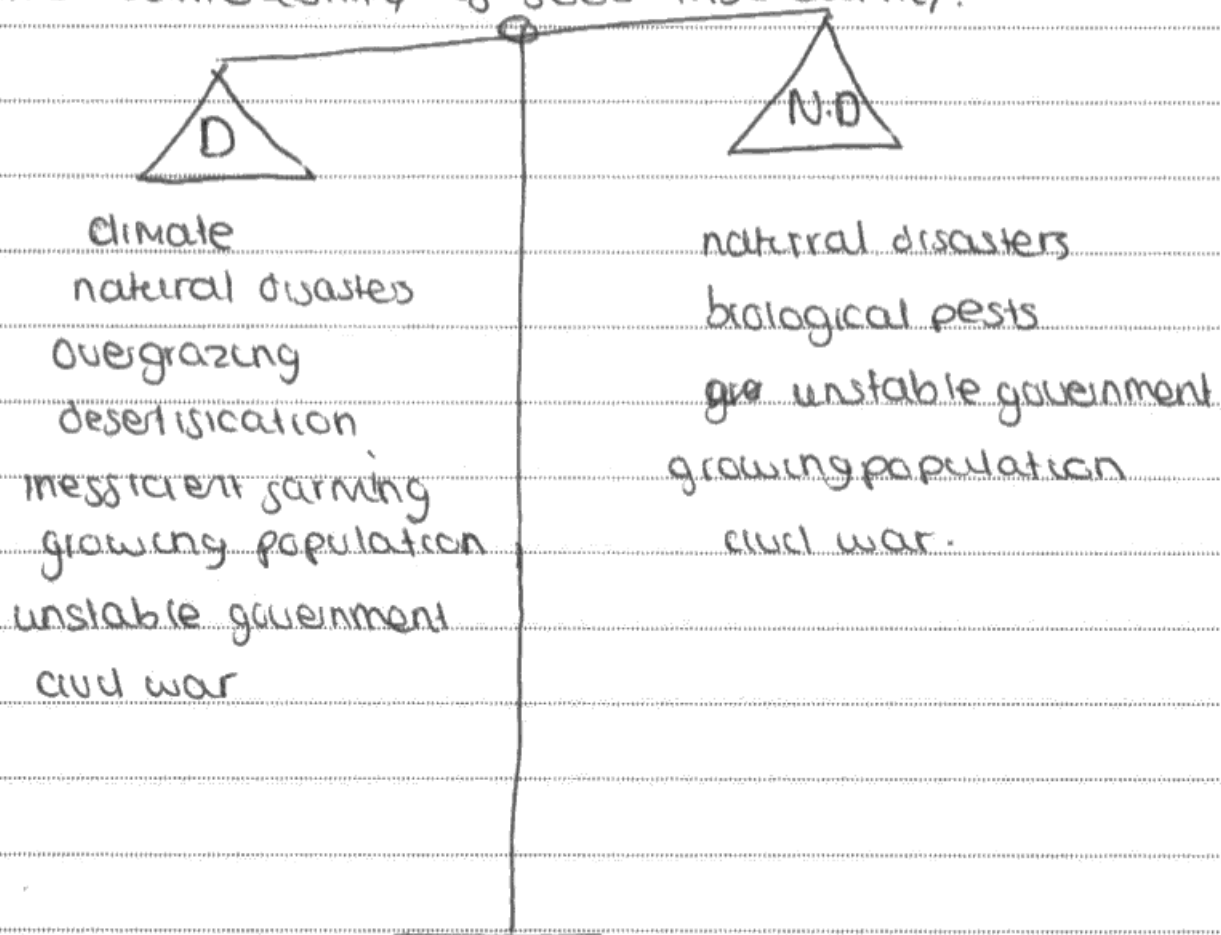 D
N.D
climate
natural disasters
overgrazing
desertification
inefficient farming
growing population
unstable government
civil war
natural disasters
biological pests
unstable government
growing population
civil war.